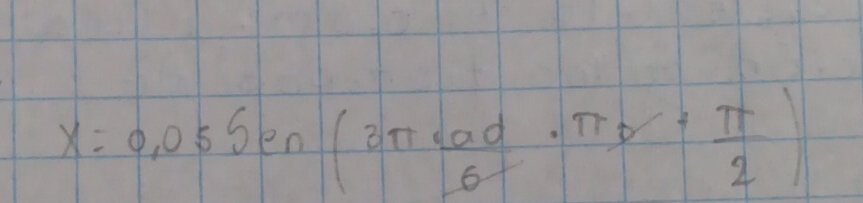 x = 0,05 Sen (3π rad/6 · π s + π/2)